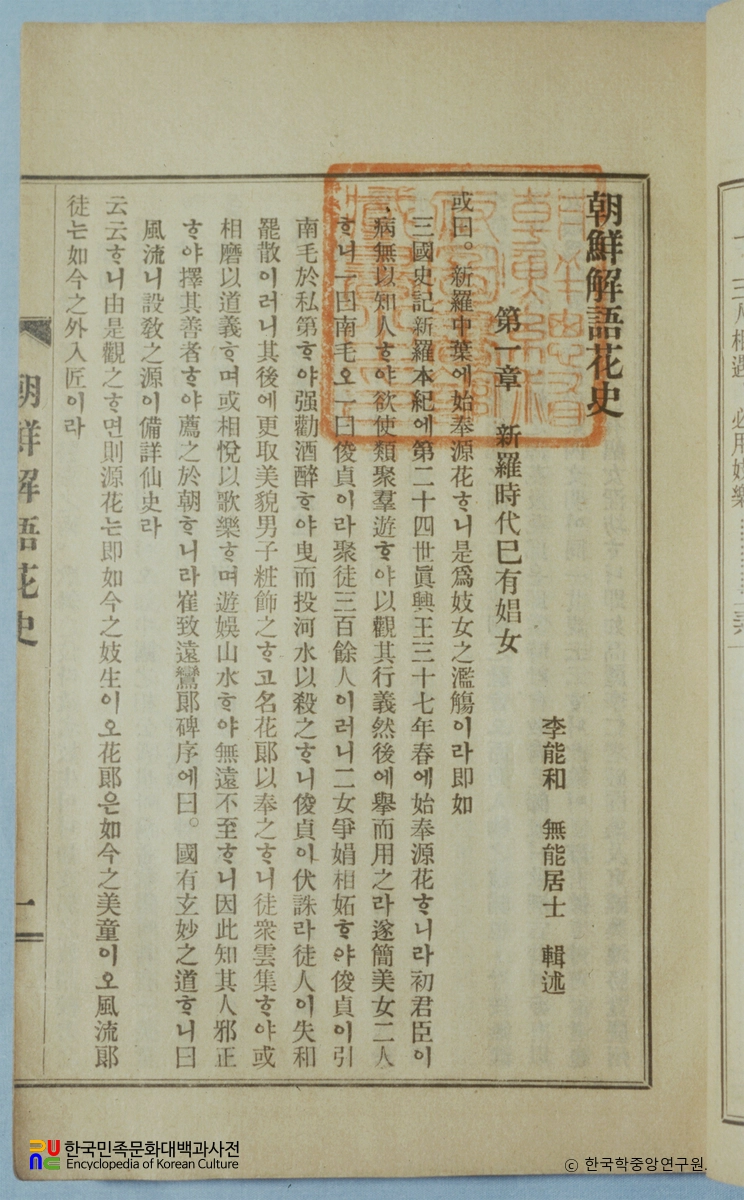 朝鮮解語花史
李能和 無能居士 輯述
第一章 新羅時代已有娼女
或曰。新羅中葉에始奉源花ᄒᆞ니是爲妓女之濫觴이라即如
三國史記新羅本紀에第二十四世眞興王三十七年春에始奉源花ᄒᆞ니라初君臣이
病無以知人ᄒᆞ야欲使類聚羣遊ᄒᆞ야以觀其行義然後에擧而用之라遂簡美女二人
ᄒᆞ니一曰南毛오一曰俊貞이라聚徒三百餘人이러니二女爭娟相妬ᄒᆞ야俊貞이引
南毛於私第ᄒᆞ야强勸酒醉ᄒᆞ야曳而投河水以殺之ᄒᆞ니俊貞이伏誅라徒人이失和
罷散이러니其後에更取美貌男子粧飾之ᄒᆞ고名花郞以奉之ᄒᆞ니徒衆雲集ᄒᆞ야或
相磨以道義ᄒᆞ며或相悅以歌樂ᄒᆞ며遊娛山水ᄒᆞ야無遠不至ᄒᆞ니因此知其人邪正
ᄒᆞ야擇其善者ᄒᆞ야薦之於朝ᄒᆞ니라崔致遠鸞郞碑序에曰。國有玄妙之道ᄒᆞ니曰
風流니設敎之源이備詳仙史라
云云ᄒᆞ니由是觀之ᄒᆞ면則源花는即如今之妓生이오花郞은如今之美童이오風流郞
徒는如今之外入匠이라
朝鮮解語花史
一
한국민족문화대백과사전
Encyclopedia of Korean Culture
© 한국학중앙연구원.